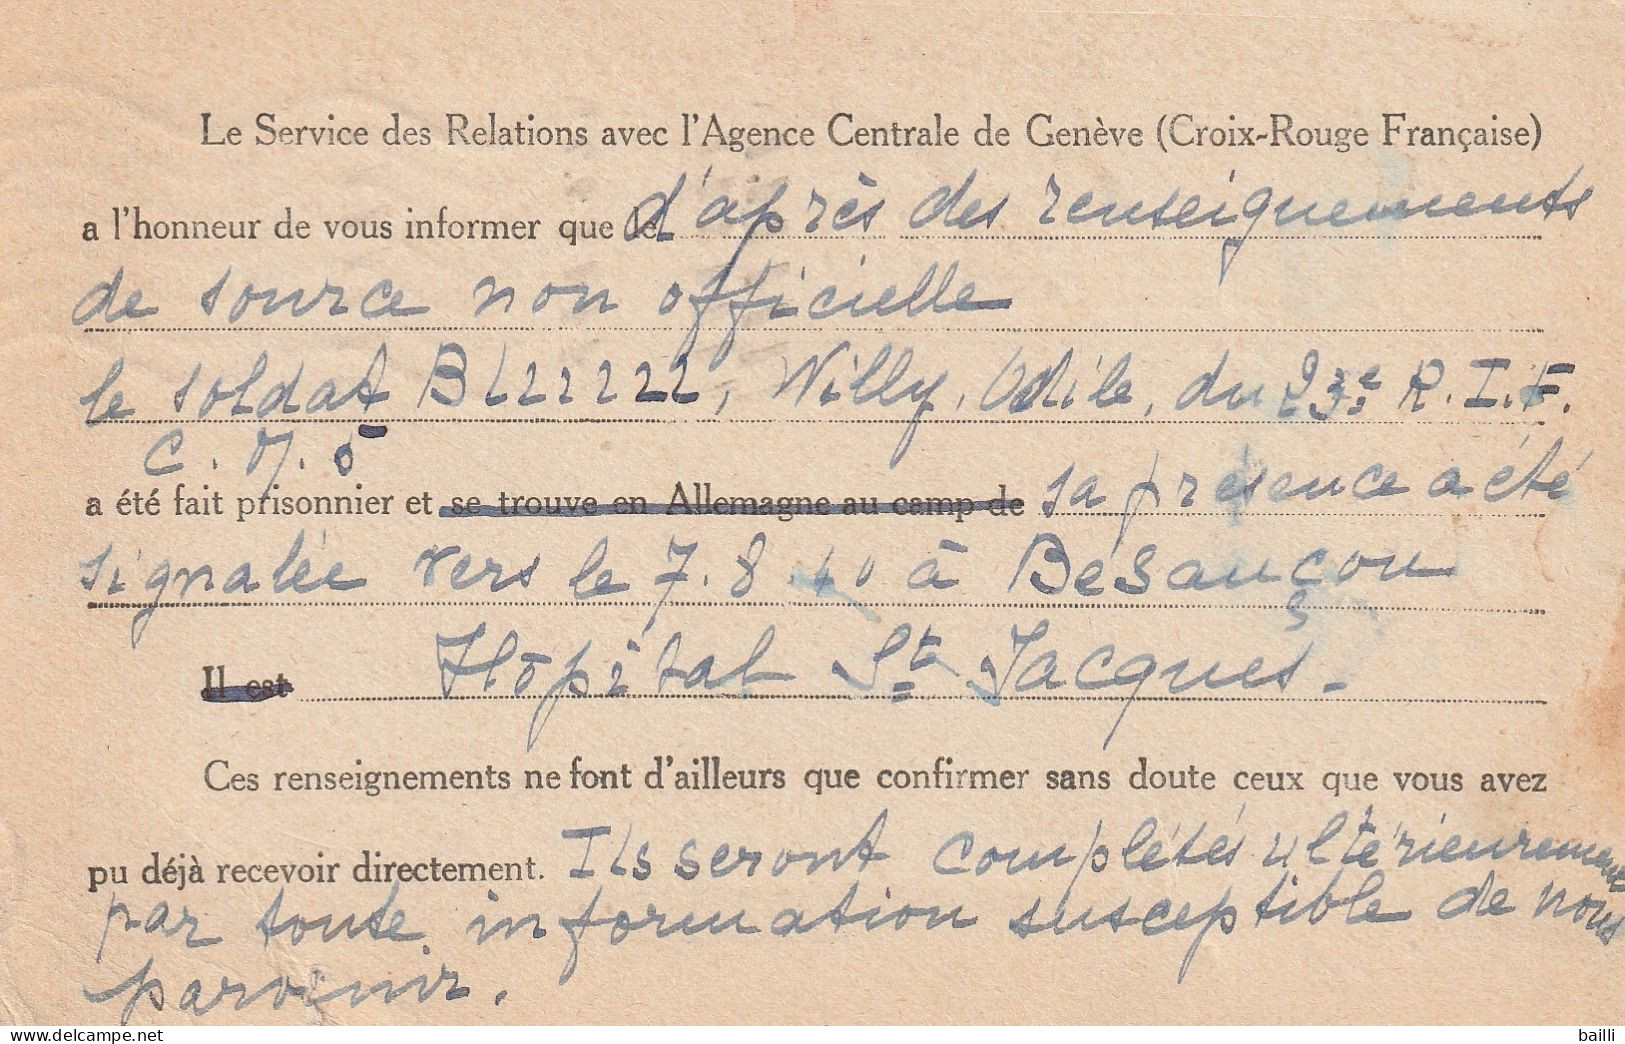 Le Service des Relations avec l'Agence Centrale de Genève (Croix-Rouge Française)
a l'honneur de vous informer que le d'après des renseignements
de source non officielle
le soldat Willy, Odile, du 23e R.I.F.
C.M.5
a été fait prisonnier et se trouve en Allemagne au camp de sa présence a été
signalée vers le 7.8.40 à Besançon
Il est Hôpital St Jacques.
Ces renseignements ne font d'ailleurs que confirmer sans doute ceux que vous avez
pu déjà recevoir directement. Ils seront complétés ultérieurement
par toute information susceptible de nous
parvenir.
Delcampe.net
bailli